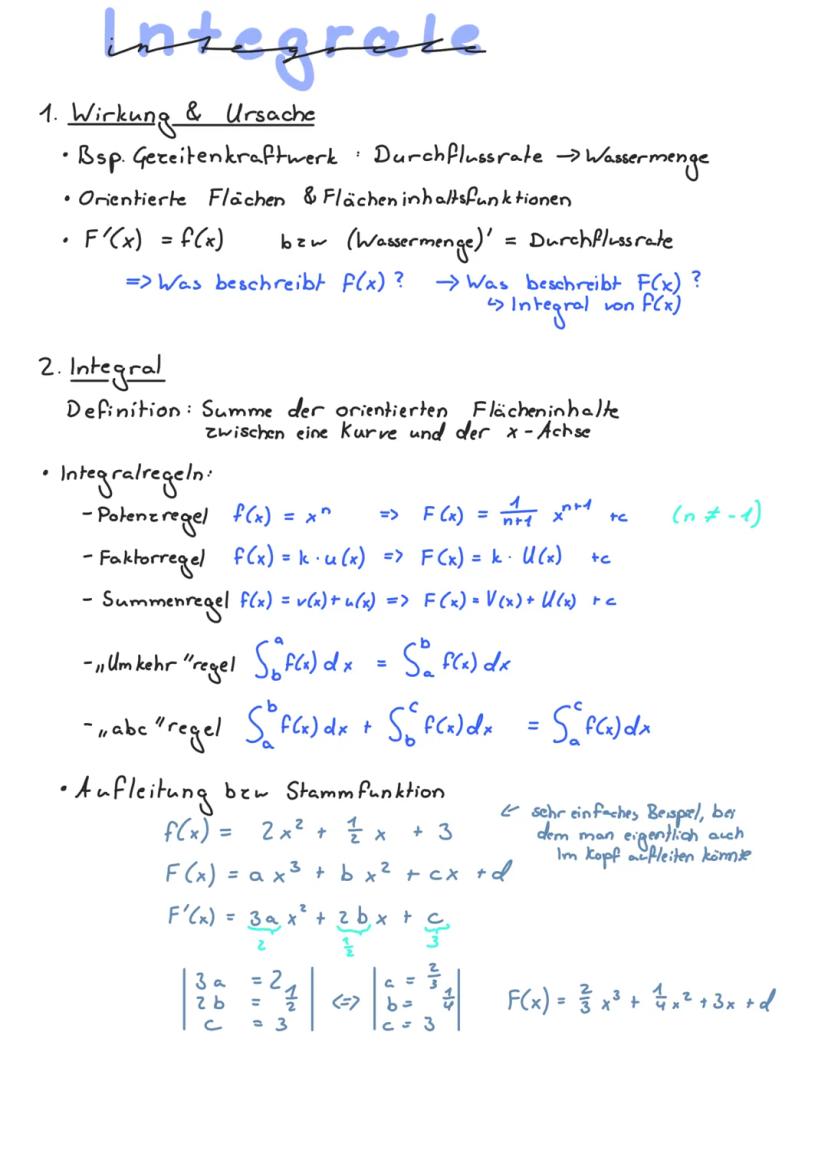 Integrale
1. Wirkung & Ursache
• Bsp. Gezeitenkraftwerk : Durchflussrate → Wassermenge
• Orientierte Flächen & Flächeninhaltsfunktionen
• F'(x) = f(x) bzw (Wassermenge)' = Durchflussrate
=> Was beschreibt f(x) ? → Was beschreibt F(x) ?
↳ Integral von f(x)
2. Integral
Definition : Summe der orientierten Flächeninhalte
zwischen eine Kurve und der x-Achse
• Integralregeln:
- Potenzregel f(x) = xⁿ => F(x) = 1/(n+1) xⁿ⁺¹ +c (n ≠ -1)
- Faktorregel f(x) = k · u(x) => F(x) = k · U(x) +c
- Summenregel f(x) = v(x) + u(x) => F(x) = V(x) + U(x) +c
- „Umkehr"regel ∫_b^a f(x) dx = ∫_a^b f(x) dx
- „abc"regel ∫_a^b f(x) dx + ∫_b^c f(x) dx = ∫_a^c f(x) dx
• Aufleitung bzw Stammfunktion
f(x) = 2x² + 1/2 x + 3
← sehr einfaches Beispiel, bei
dem man eigentlich auch
im Kopf aufleiten könnte
F(x) = ax³ + bx² + cx + d
F'(x) = 3a x² + 2b x + c
2 1/2 3
| 3a = 2 | <=> | a = 2/3 |
| 2b = 1/2 | | b = 1/4 | F(x) = 2/3 x³ + 1/4 x² + 3x + d
| c = 3 | | c = 3 |